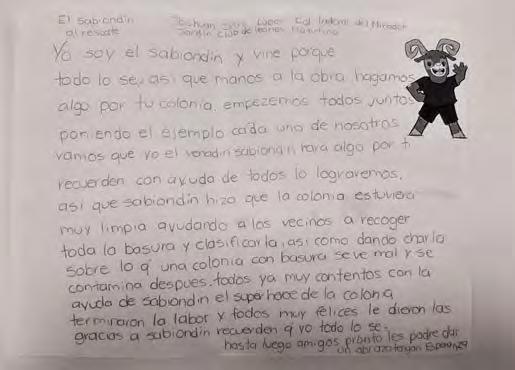 El Sabiondin
al rescate
Jardin club de leones Matutino
Yo soy el sabiondin y vine porque
todo lo se, asi que manos a la obra hagamos
algo por tu colonia, empezemos todos juntos
poniendo el ejemplo cada uno de nosotros
vamos que yo el venadin sabiondin hara algo por ti
recuerden con ayuda de todos lo lograremos,
asi que sabiondin hizo que la colonia estuviera
muy limpia ayudando a los vecinos a recoger
toda la basura y clasificarla, asi como dando charla
sobre lo q' una colonia con basura se ve mal y se
contamina despues. todos ya muy contentos con la
ayuda de sabiondin el super heroe de la colonia
terminaron la labor y todos muy felices le dieron las
gracias a sabiondin recuerden q yo todo lo se.
hasta luego amigos pronto les podre dar
un abrazo tengan Esperanza